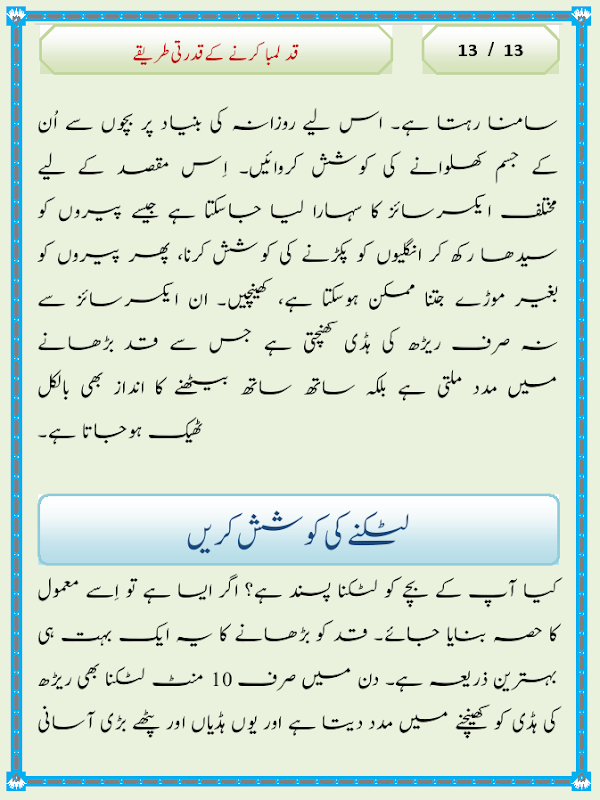 قد لمبا کرنے کے قدرتی طریقے
13 / 13
سامنا رہتا ہے۔ اس لیے روزانہ کی بنیاد پر بچوں سے اُن
کے جسم کھلوانے کی کوشش کروائیں۔ اِس مقصد کے لیے
مختلف ایکسرسائز کا سہارا لیا جاسکتا ہے جیسے پیروں کو
سیدھا رکھ کر انگلیوں کو پکڑنے کی کوشش کرنا، پھر پیروں کو
بغیر موڑے جتنا ممکن ہوسکتا ہے، کھینچیں۔ ان ایکسرسائز سے
نہ صرف ریڑھ کی ہڈی کھنچتی ہے جس سے قد بڑھانے
میں مدد ملتی ہے بلکہ ساتھ ساتھ بیٹھنے کا انداز بھی بالکل
ٹھیک ہوجاتا ہے۔
لٹکنے کی کوشش کریں
کیا آپ کے بچے کو لٹکنا پسند ہے؟ اگر ایسا ہے تو اِسے معمول
کا حصہ بنایا جائے۔ قد کو بڑھانے کا یہ ایک بہت ہی
بہترین ذریعہ ہے۔ دن میں صرف 10 منٹ لٹکنا بھی ریڑھ
کی ہڈی کو کھینچنے میں مدد دیتا ہے اور یوں ہڈیاں اور پٹھے بڑی آسانی